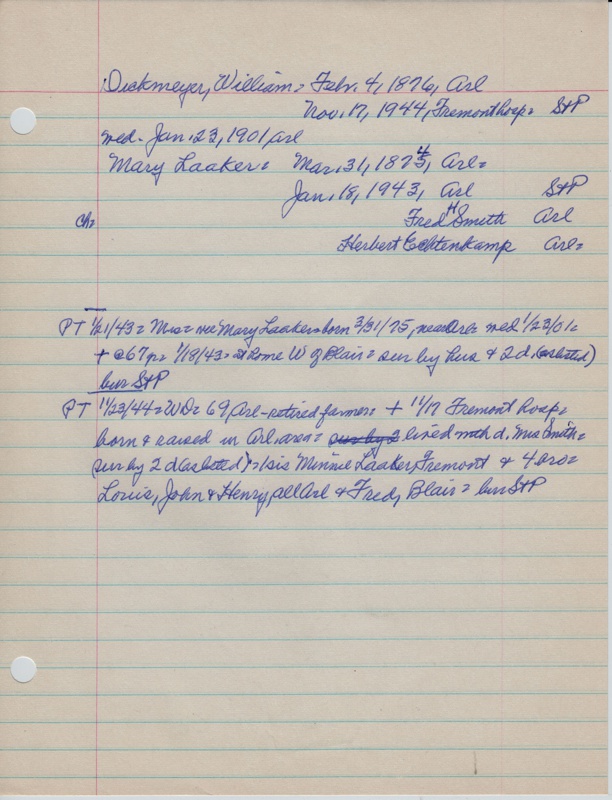 Dickmeyer, William = Febr. 4, 1876, Arl
Nov. 17, 1944, Fremont hosp = St P
med. Jan. 23, 1901, Arl
Mary Laaker = Mar. 31, 1875, 4 Arl =
Jan. 18, 1943, Arl St P
Ch = Fred H Smith Arl
Herbert Echtenkamp Arl =
PT 1/21/43 = Mrs = nee Mary Laaker = born 3/31/75, near Arl = med 1/23/01 =
+ @ 67 yr = 1/18/43 = at home W of Blair = sur by hus & 2 d. (as listed)
bur St P
PT 11/23/44 = WD = 69, Arl - retired farmer = + 11/17 Fremont hosp =
born & raised in Arl. area = sur by 2 lived with d, Mrs Smith =
(sur by 2 d (as listed) = 1 sis Minnie Laaker, Fremont & 4 bro =
Louis, John & Henry, all Arl & Fred, Blair = bur St P